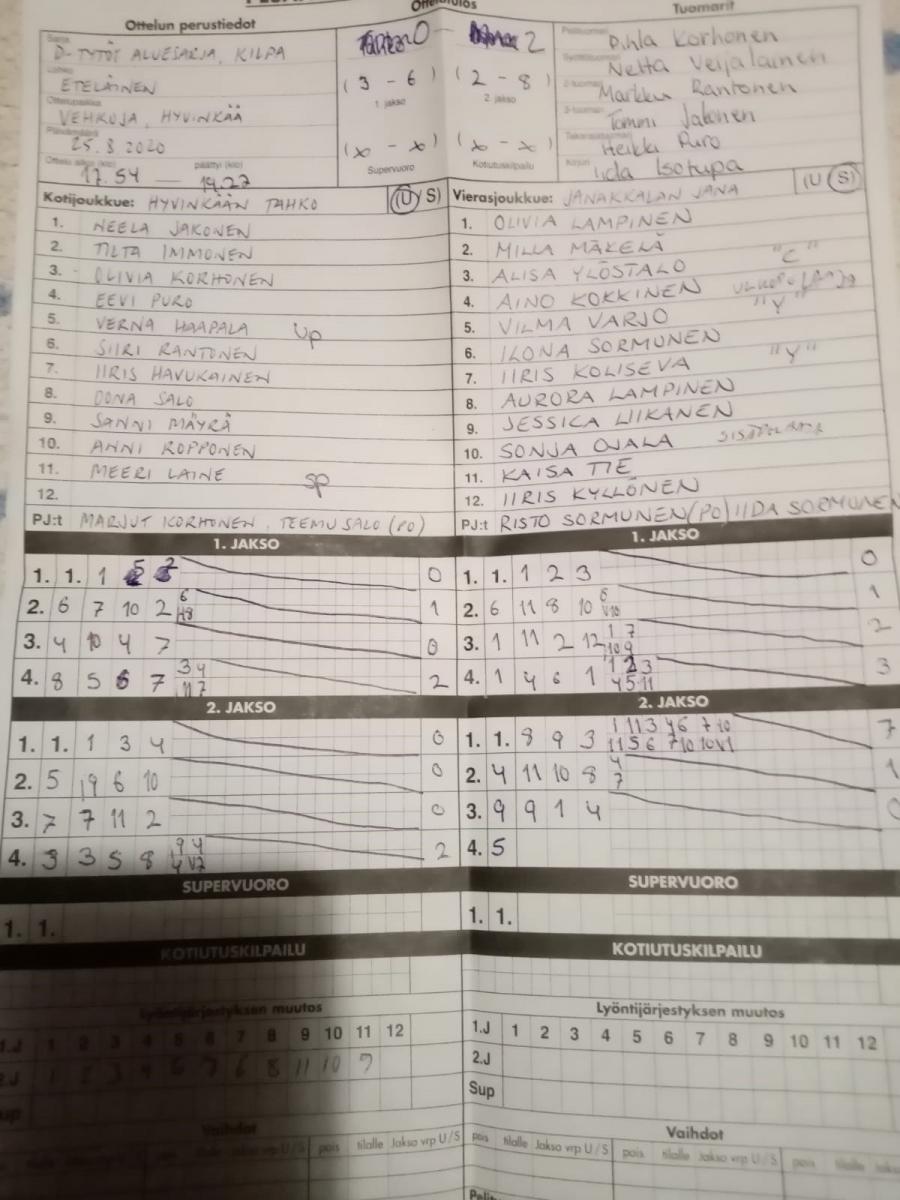 Ottelun perustiedot
Tuomarit
D-TYTÖT ALUESARJA, KILPA
0 — 2
Pihla Korhonen
ETELÄINEN
(3 - 6) (2 - 8)
1. jakso 2. jakso
Netta Veijalainen
Ottelupaikka
VEHKOJA, HYVINKÄÄ
Markku Rantonen
Päivämäärä
25.8.2020
(x - x) (x - x)
Supervuoro Kotiutuskilpailu
Tommi Jakonen
Heikki Puro
Ottelu alkoi (klo) päättyi (klo)
17.54 — 19.27
Iida Isotupa
Kotijoukkue: HYVINKÄÄN TAHKO (U/S)
1. NEELA JAKONEN
2. TILTA IMMONEN
3. OLIVIA KORHONEN
4. EEVI PURO
5. VERNA HAAPALA UP
6. SIIRI RANTONEN
7. IIRIS HAVUKAINEN
8. OONA SALO
9. SANNI MÄYRÄ
10. ANNI ROPPONEN
11. MEERI LAINE SP
12.
PJ:t MARJUT KORHONEN, TEEMU SALO (PO)
Vierasjoukkue: JANAKKALAN JANA (U/S)
1. OLIVIA LAMPINEN
2. MILLA MÄKELÄ
3. ALISA YLÖSTALO "C"
4. AINO KOKKINEN
5. VILMA VARJO "Y"
6. ILONA SORMUNEN
7. IIRIS KOLISEVA "Y"
8. AURORA LAMPINEN
9. JESSICA LIIKANEN
10. SONJA OJALA
11. KAISA TIE
12. IIRIS KYLLÖNEN
PJ:t RISTO SORMUNEN (PO) IIDA SORMUNEN
1. JAKSO
1. 1. 1 0
2. 6 7 10 2 1
3. 4 10 4 7 0
4. 8 5 6 7 3 4 2
2. JAKSO
1. 1. 1 3 4 0
2. 5 9 6 10 0
3. 7 7 11 2 0
4. 3 3 5 8 9 4 2
SUPERVUORO
1. 1.
KOTIUTUSKILPAILU
Lyöntijärjestyksen muutos
1.J 1 2 3 4 5 6 7 8 9 10 11 12
2.J 1 2 3 4 8 11 10
Sup
Vaihdot
pois tilalle Jakso vrp U/S
1. JAKSO
1. 1. 1 2 3 0
2. 6 11 8 10 1
3. 1 11 2 12 1 7 10 9 2
4. 1 4 6 1 1 2 3 4 5 11 3
2. JAKSO
1. 1. 8 9 3 7
2. 4 11 10 8 4 7 1
3. 9 9 1 4 0
4. 5
SUPERVUORO
1. 1.
KOTIUTUSKILPAILU
Lyöntijärjestyksen muutos
1.J 1 2 3 4 5 6 7 8 9 10 11 12
2.J
Sup
Vaihdot
pois tilalle Jakso vrp U/S pois tilalle Jakso vrp U/S pois tilalle